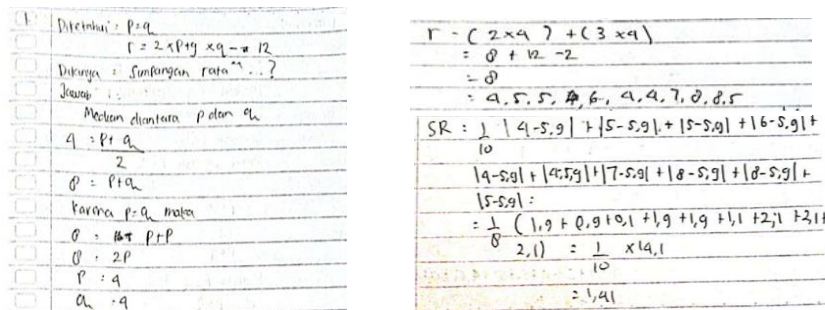 1. Diketahui : P = q
r = 2 x P + y x q - 12
Ditanya : Simpangan rata" ..?
Jawab :
Median diantara P dan q
4 = P + q
2
8 = P + q
Karena P = q maka
8 = P + P
8 = 2P
P = 4
q = 4
r - (2 x 4) + (3 x 4)
= 8 + 12 - 2
= 8
= 4, 5, 5, 6, 4, 4, 7, 8, 8, 5
SR = 1 |4-5,9| + |5-5,9| + |5-5,9| + |6-5,9| +
10
|4-5,9| + |4-5,9| + |7-5,9| + |8-5,9| + |8-5,9| +
|5-5,9| :
= 1 (1,9 + 0,9 + 0,1 + 1,9 + 1,9 + 1,1 + 2,1 + 2,1 +
8
2,1) = 1 x 14,1
10
= 1,41